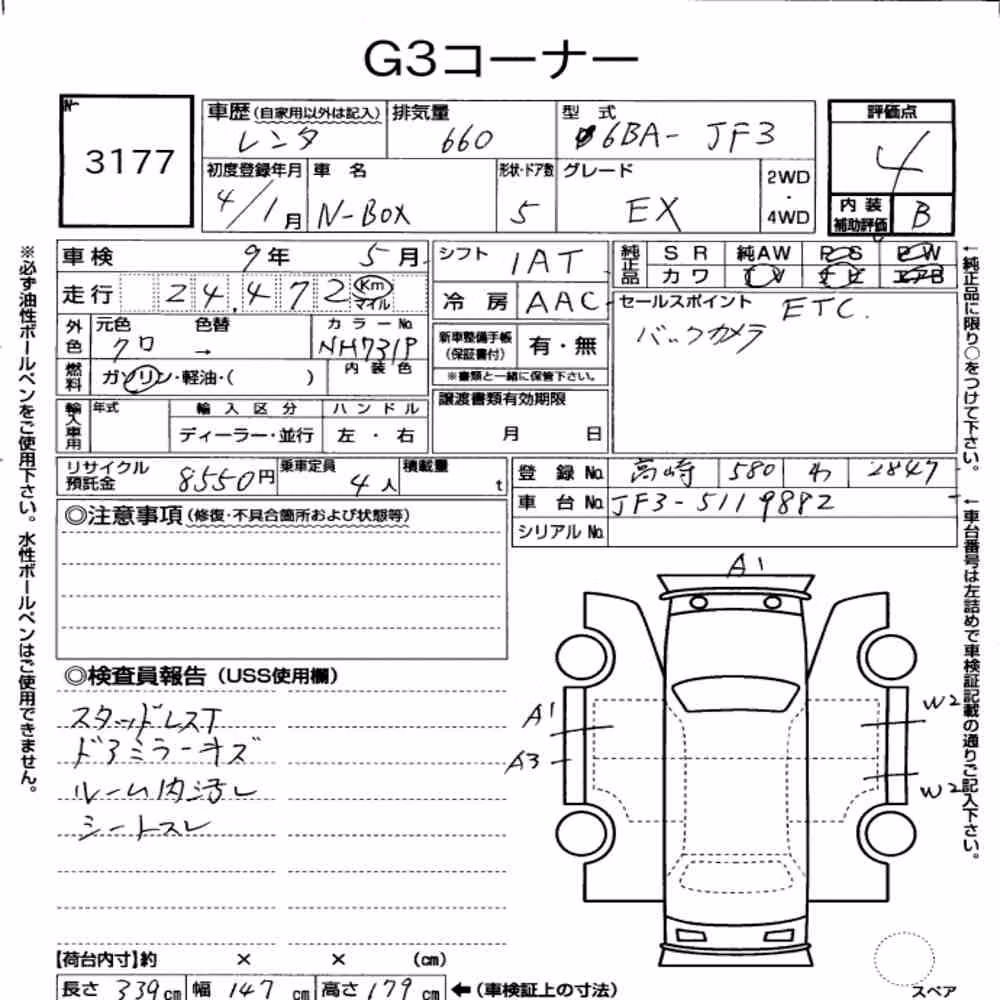 G3コーナー
No. 3177
車歴(自家用以外は記入) レンタ
排気量 660
型式 6BA- JF3
評価点 4
初度登録年月 4/1月
車名 N-BOX
形状・ドア数 5
グレード EX
2WD・4WD
内装補助評価 B
車検 9年 5月
シフト IAT
純正品 SR 純AW PS PW
カワ TV ナビ エアB
走行 24,472 Km マイル
冷房 AAC
セールスポイント ETC.
バックカメラ
外色 元色 クロ 色替 → カラーNo. NH731P
新車整備手帳(保証書付) 有・無
※書類と一緒に保管下さい。
燃料 ガソリン・軽油・( ) 内装色
譲渡書類有効期限 月 日
輸入車用 年式 輸入区分 ハンドル
ディーラー・並行 左・右
リサイクル預託金 8550円
乗車定員 4人
積載量 t
登録No. 高崎 580 わ 2847
車台No. JF3-5119882
シリアルNo.
◎注意事項(修復・不具合箇所および状態等)
◎検査員報告(USS使用欄)
スタッドレスT
ドアミラーキズ
ルーム内汚レ
シートスレ
A1
A1
A3
W2
W2
【荷台内寸】約 × × (cm)
長さ 339cm 幅 147cm 高さ 179cm ←(車検証上の寸法)
スペア
※必ず油性ボールペンをご使用下さい。水性ボールペンはご使用できません。
←純正品に限り○をつけて下さい。
←車台番号は左詰めで車検証記載の通りご記入下さい。